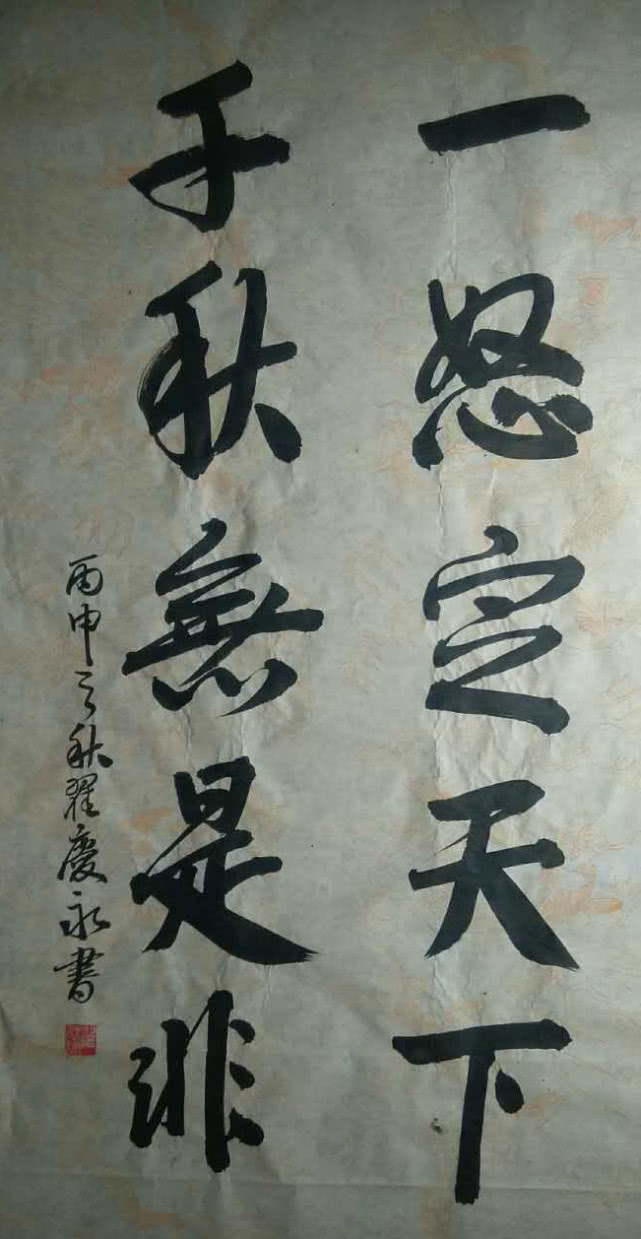 一怒定天下
千秋無是非
丙申之秋翟慶永書